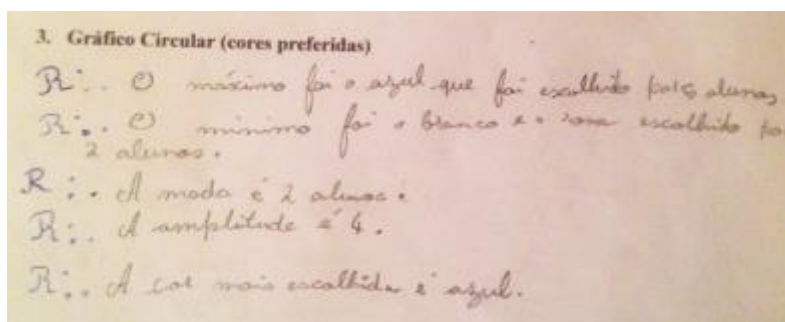 3. Gráfico Circular (cores preferidas)
R:. O máximo foi o azul que foi escolhido por 6 alunos,
R:. O minimo foi o branco e o rosa escolhido po
2 alunos.
R:. A moda é 2 alunos.
R:. A amplitude é 4.
R:. A cor mais escolhida é azul.